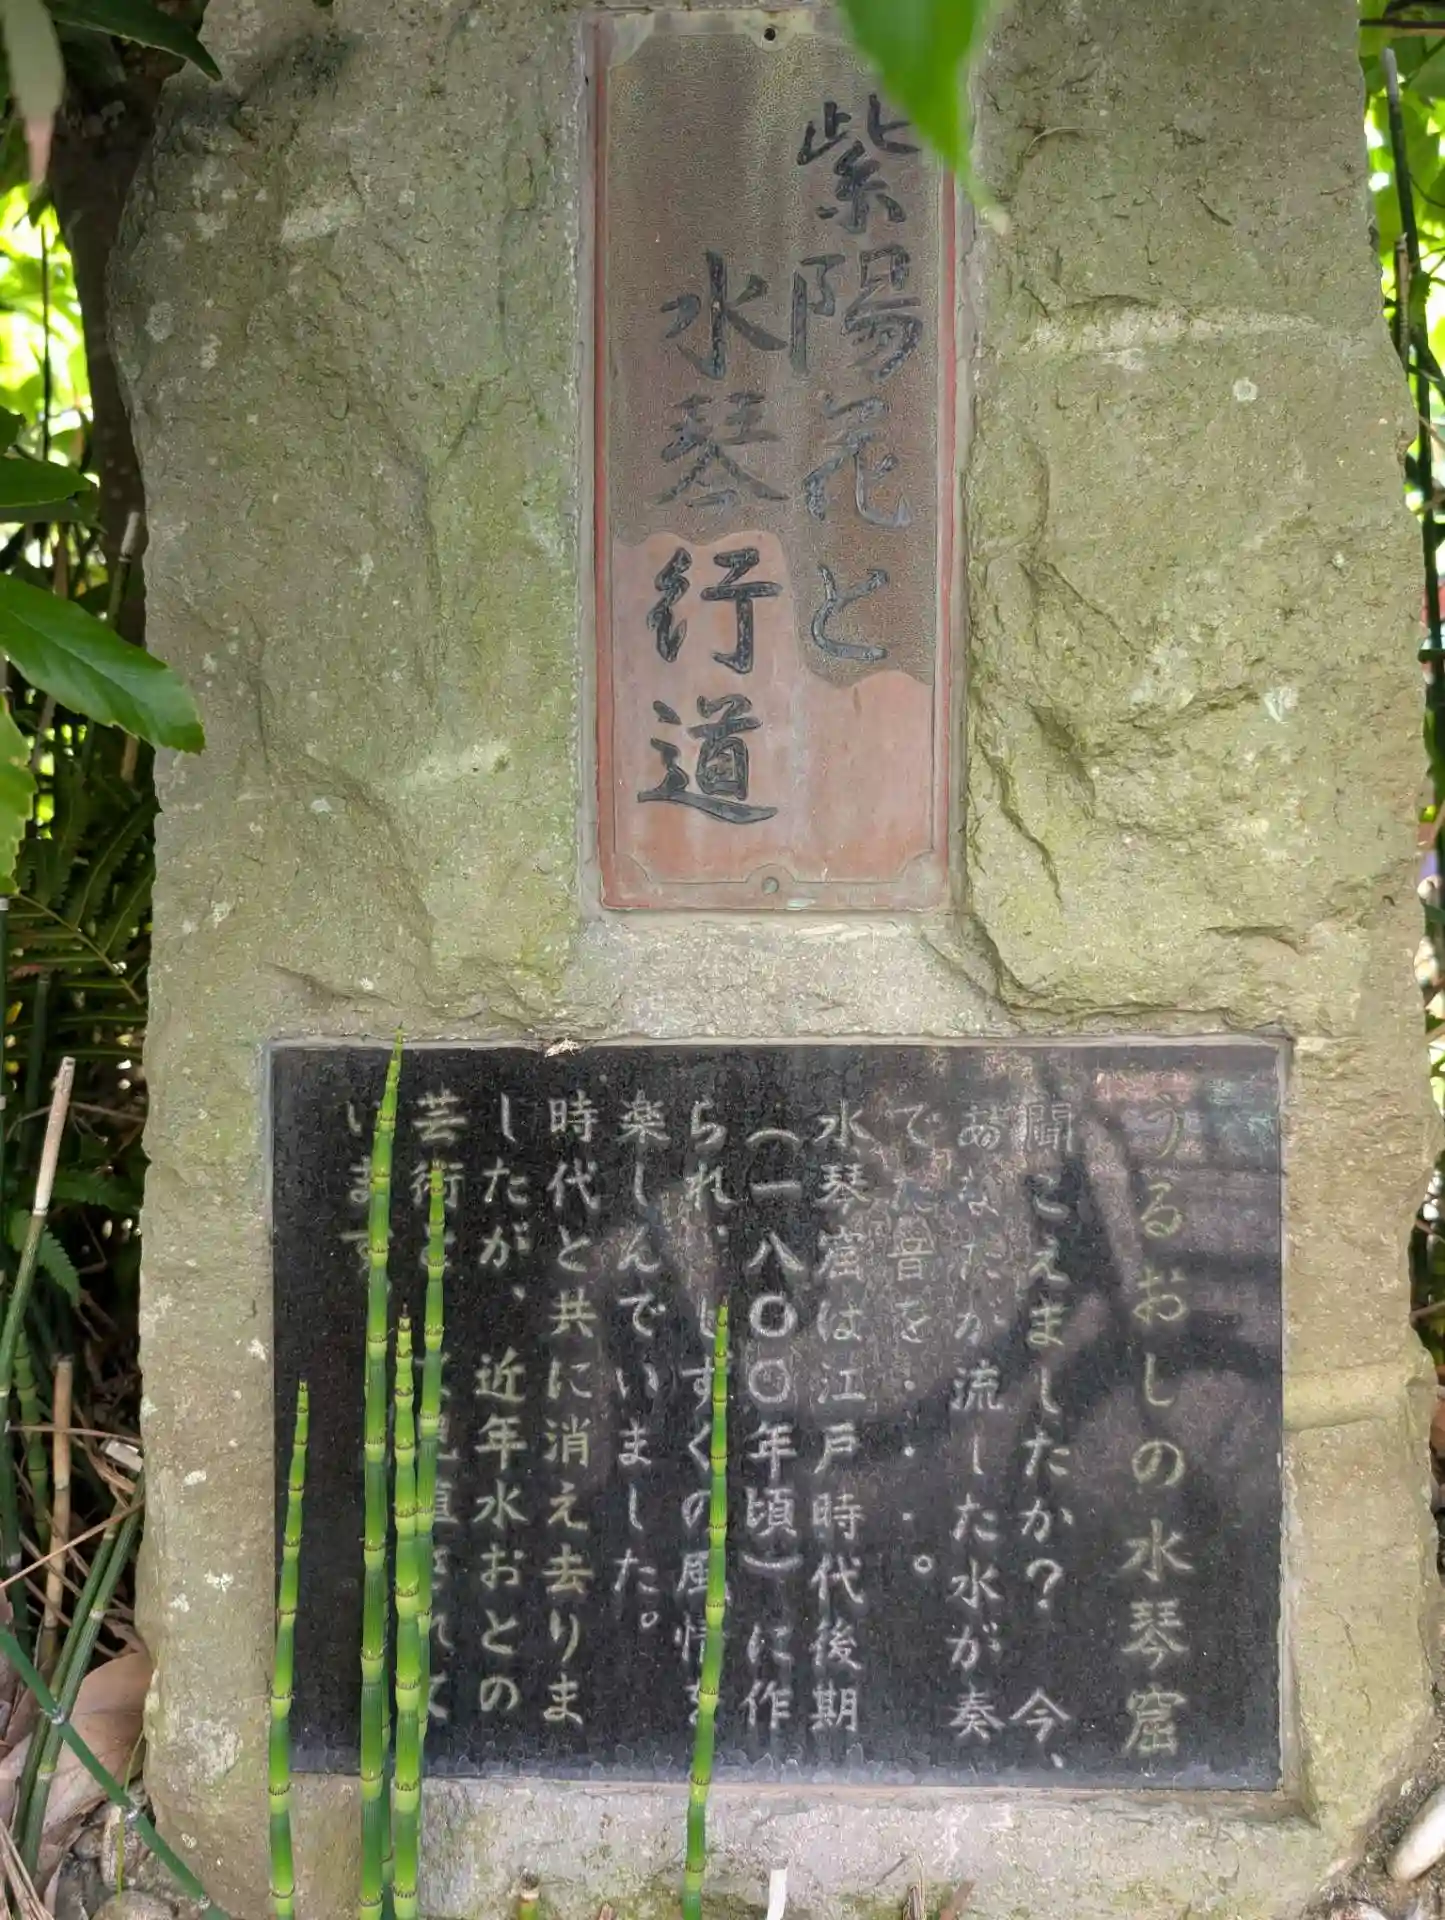 紫陽花と
水琴行道
うるおしの水琴窟
聞こえましたか？　今、
あなたが流した水が奏
でた音を・・・。
水琴窟は江戸時代後期
（一八〇〇年頃）に作
られ、しずくの風情を
楽しんでいました。
時代と共に消え去りま
したが、近年水おとの
芸術と 見直されて
います